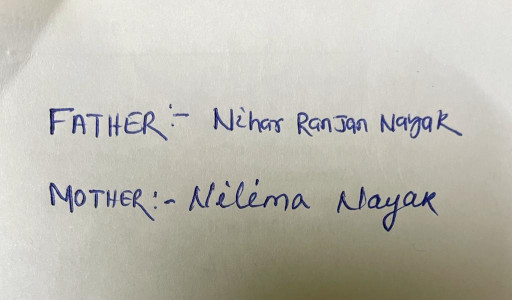 FATHER:- Nihar Ranjan Nayak
MOTHER:- Nilima Nayak